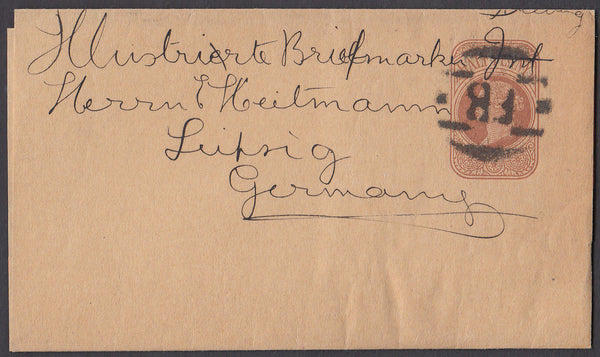 Illustrierte Briefmarken
Herrn E Heitmann
Leipsig
Germany